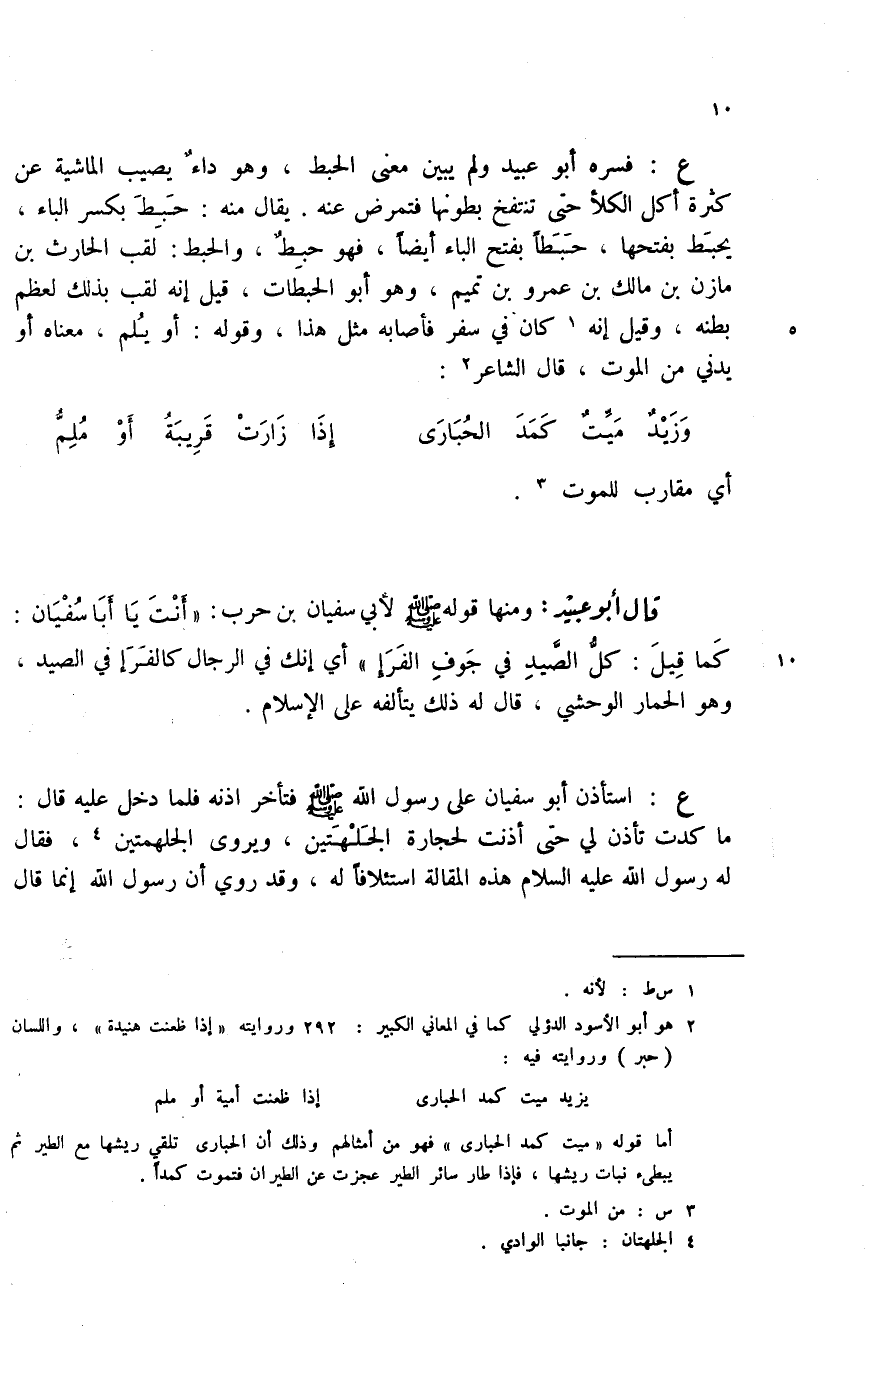 ١٠
ع : فسره أبو عبيد ولم يبين معنى الحبط ، وهو داءٌ يصيب الماشية عن
كثرة أكل الكلأ حتى تنتفخ بطونها فتمرض عنه . يقال منه : حَبِطَ بكسر الباء ،
يحبَط بفتحها ، حَبَطاً بفتح الباء أيضاً ، فهو حبِطٌ ، والحبط : لقب الحارث بن
مازن بن مالك بن عمرو بن تميم ، وهو أبو الحبطات ، قيل إنه لقب بذلك لعظم
٥ بطنه ، وقيل إنه ١ كان في سفر فأصابه مثل هذا ، وقوله : أو يُلم ، معناه أو
يدني من الموت ، قال الشاعر ٢ :
وَزَيْدٌ مَيِّتٌ كَمَدَ الحُبَارَى إِذَا زَارَتْ قَرِيبَةُ أَوْ مُلِمُّ
أي مقارب للموت ٣ .
قال أبو عبيد : ومنها قوله ﷺ لأبي سفيان بن حرب : « أَنْتَ يَا أَبَا سُفْيَان :
١٠ كَما قِيلَ : كلُّ الصَّيدِ في جَوفِ الفَرَإِ » أي إنك في الرجال كالفَرَإ في الصيد ،
وهو الحمار الوحشي ، قال له ذلك يتألفه على الإسلام .
ع : استأذن أبو سفيان على رسول الله ﷺ فتأخر اذنه فلما دخل عليه قال :
ما كدت تأذن لي حتى أذنت لحجارة الجَلْهَتين ، ويروى الجلهمتين ٤ ، فقال
له رسول الله عليه السلام هذه المقالة استئلافاً له ، وقد روي أن رسول الله إنما قال
١ س ط : لأنه .
٢ هو أبو الأسود الدؤلي كما في المعاني الكبير : ٢٩٢ وروايته « إذا ظعنت هنيدة » ، واللسان
( حبر ) وروايته فيه :
يزيد ميت كمد الحبارى إذا ظعنت أمية أو ملم
أما قوله « ميت كمد الحبارى » فهو من أمثالهم وذلك أن الحبارى تلقي ريشها مع الطير ثم
يبطىء نبات ريشها ، فإذا طار سائر الطير عجزت عن الطيران فتموت كمداً .
٣ س : من الموت .
٤ الجلهتان : جانبا الوادي .